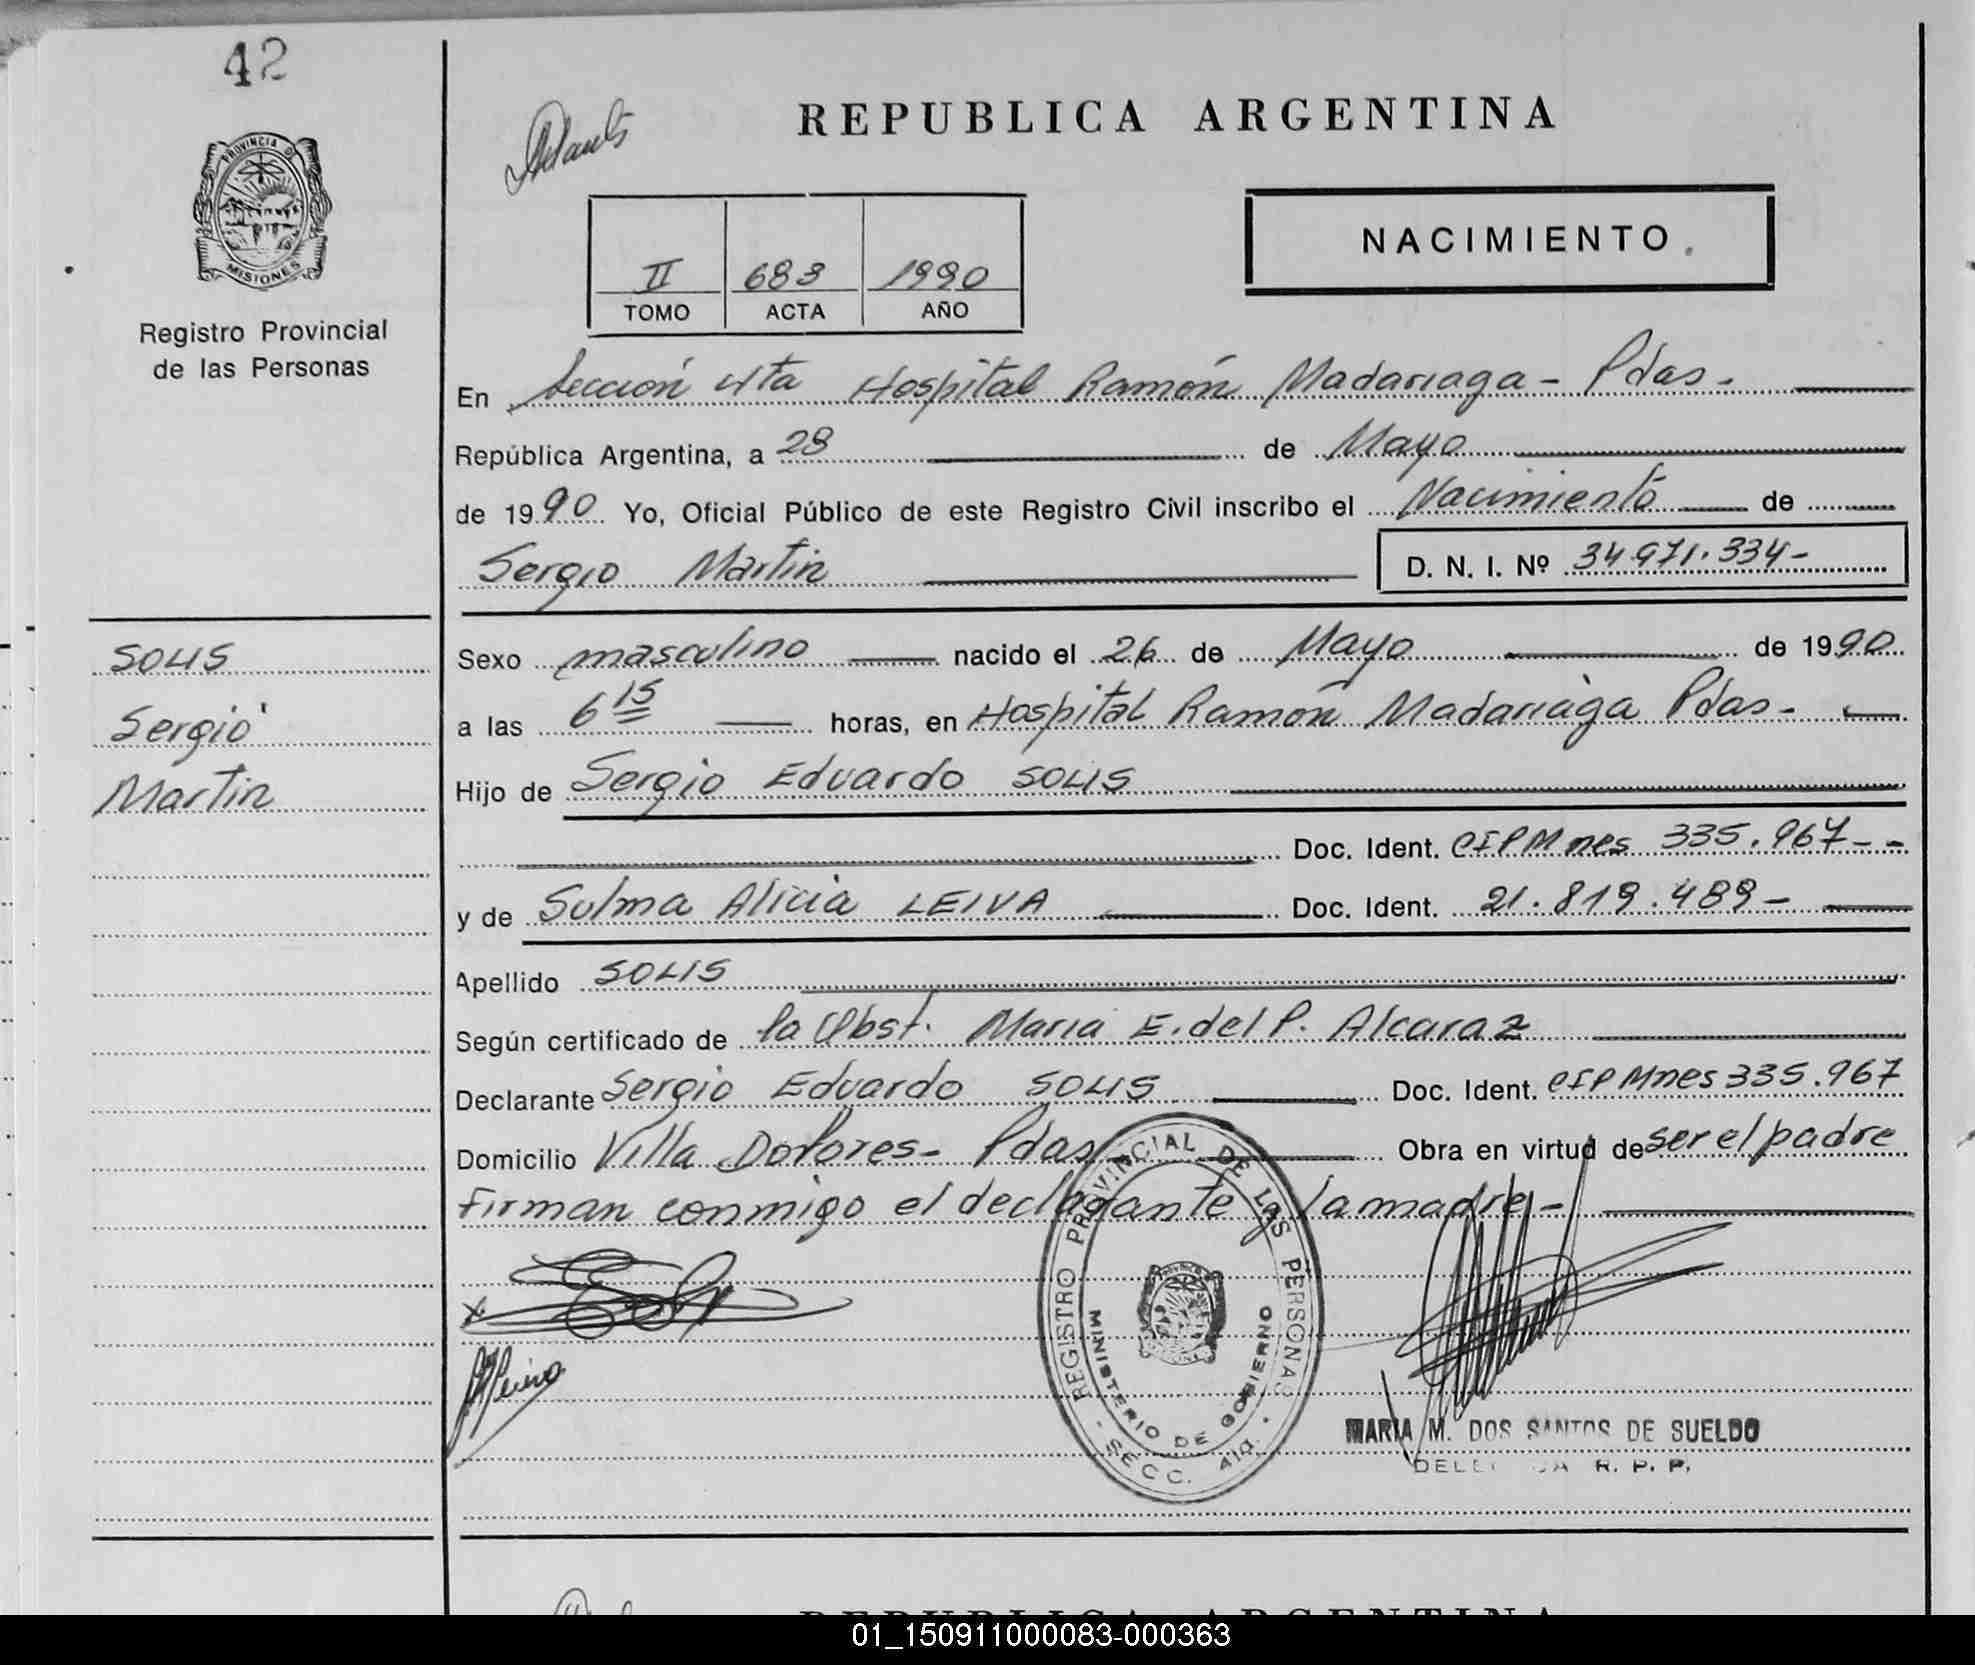 42
REPUBLICA ARGENTINA
PROVINCIA D
MISIONES
Registro Provincial
de las Personas
II 683 1990
TOMO ACTA AÑO
NACIMIENTO.
En Sección 4ta Hospital Ramón Madariaga - Pdas -
República Argentina, a 28 de Mayo
de 1990 Yo, Oficial Público de este Registro Civil inscribo el Nacimiento de
Sergio Martin D. N. I. Nº 34.971.334-
SOLIS
Sergio
Martin
Sexo masculino nacido el 26 de Mayo de 1990
a las 6 15 horas, en Hospital Ramón Madariaga Pdas -
Hijo de Sergio Eduardo SOLIS
Doc. Ident. CIPMnes 335.967 - -
y de Sulma Alicia LEIVA Doc. Ident. 21.819.489 -
Apellido SOLIS
Según certificado de la Obst. Maria E. del P. Alcaraz
Declarante Sergio Eduardo SOLIS Doc. Ident. CIP Mnes 335.967
Domicilio Villa Dolores - Pdas - Obra en virtud de ser el padre
Firman conmigo el declarante y la madre -
REGISTRO PROVINCIAL DE LAS PERSONAS
MINISTERIO DE GOBIERNO
- SECC. 4ta. -
MARIA M. DOS SANTOS DE SUELDO
R. P. P.
REPUBLICA ARGENTINA
01_150911000083-000363